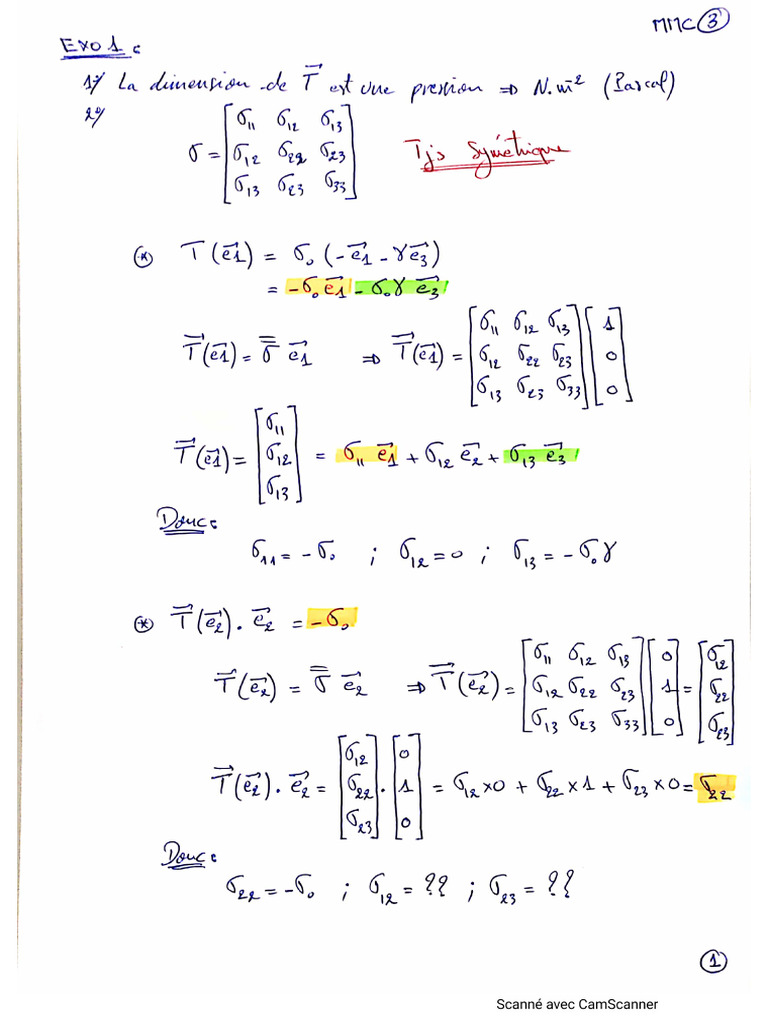 MMC ③
Exo 1 :
1°/ La dimension de T⃗ est une pression ⇒ N.m⁻² (Pascal)
2°/
σ = [σ₁₁ σ₁₂ σ₁₃
σ₁₂ σ₂₂ σ₂₃
σ₁₃ σ₂₃ σ₃₃]
Tjs Symétrique
(*) T(e⃗1) = σ₀ (-e⃗1 - γe⃗3)
= -σ₀e⃗1 - σ₀γ e⃗3
T⃗(e⃗1) = σ̿ e⃗1 ⇒ T⃗(e⃗1) = [σ₁₁ σ₁₂ σ₁₃; σ₁₂ σ₂₂ σ₂₃; σ₁₃ σ₂₃ σ₃₃] [1; 0; 0]
T⃗(e⃗1) = [σ₁₁; σ₁₂; σ₁₃] = σ₁₁ e⃗1 + σ₁₂ e⃗2 + σ₁₃ e⃗3
Donc :
σ₁₁ = -σ₀ ; σ₁₂ = 0 ; σ₁₃ = -σ₀γ
(*) T⃗(e⃗2) . e⃗2 = -σ₀
T⃗(e⃗2) = σ̿ e⃗2 ⇒ T⃗(e⃗2) = [σ₁₁ σ₁₂ σ₁₃; σ₁₂ σ₂₂ σ₂₃; σ₁₃ σ₂₃ σ₃₃] [0; 1; 0] = [σ₁₂; σ₂₂; σ₂₃]
T⃗(e⃗2) . e⃗2 = [σ₁₂; σ₂₂; σ₂₃] . [0; 1; 0] = σ₁₂ x 0 + σ₂₂ x 1 + σ₂₃ x 0 = σ₂₂
Donc :
σ₂₂ = -σ₀ ; σ₁₂ = ?? ; σ₂₃ = ??
①
Scanné avec CamScanner